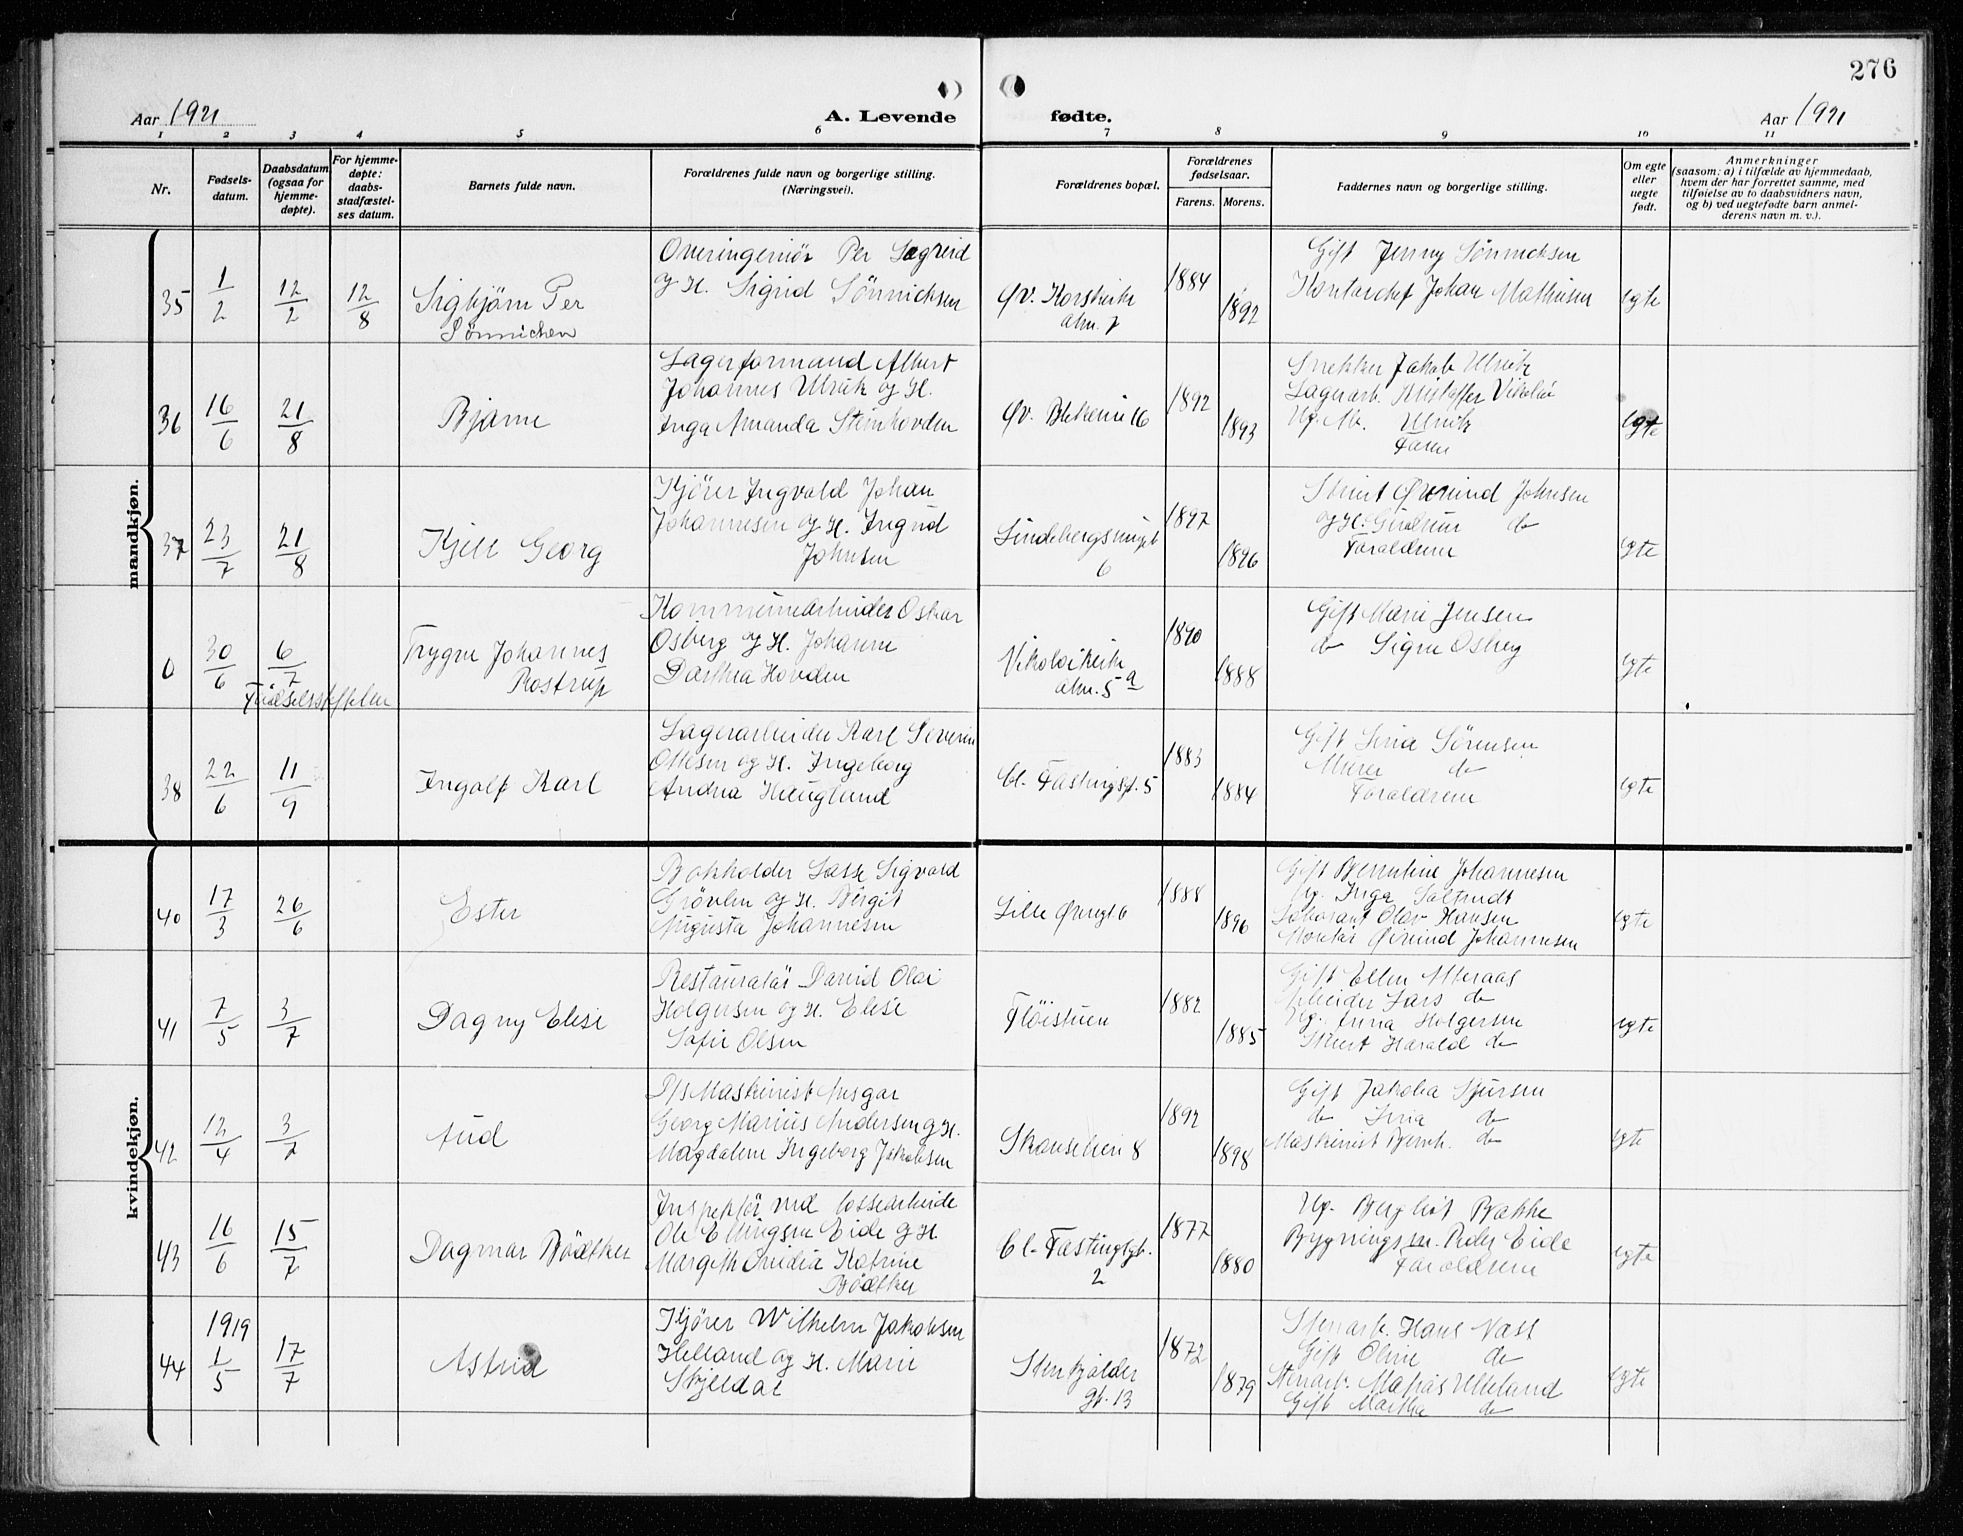 276
Aar 1921
A. Levende fødte.
Aar 1921
1 2 3 4 5 6 7 8 9 10 11
Nr.
Fødsels-
datum.
Daabsdatum
(ogsaa for
hjemme-
døpte).
For hjemme-
døpte:
daabs-
stadfæstel-
ses datum.
Barnets fulde navn.
Forældrenes fulde navn og borgerlige stilling.
(Næringsvei).
Forældrenes bopæl.
Forældrenes
fødselsaar.
Farens. Morens.
Faddernes navn og borgerlige stilling.
Om egte
eller
uegte
født.
Anmerkninger
(saasom: a) i tilfælde av hjemmedaab,
hvem der har forrettet samme, med
tilføielse av to daabsvidners navn,
og b) ved uegtefødte barn anmel-
derens navn m. v.).
mandkjøn.
35 1/2 12/2 12/8
Sigbjørn Per
Sønnichsen
Overingeniør Per Sægreid
og H. Sigrid Sønnichsen
Øv. Korskirke
alm. 7
1884 1892
Gift Jenny Sønnichsen
Kontorchef Johan Mathiesen
egte
36 16/6 21/8
Bjarne
Lagerformand Albert
Johannes Ulrik og H.
Inga Amanda Steinhovden
Øv. Blekevei 16
1892 1893
Snekker Jakob Ulrik
Lagerarb. Kristoffer Nikolai
Ug. Ulrik
Faren
egte
37 23/7 21/8
Kjell Georg
Kjører Ingvald Johan
Johannesen og H. Ingrid
Johnsen
6
1897 1896
Øivind Johnsen
og H. Gudrun do
Forældrene
egte
0 30/6 6/7
Fødselsstiftelsen
Trygve Johannes
Rostrup
Kommunearbeider Oskar
Osberg og H. Johanne
Dorthea Hovden
Nikolaikirke
alm. 5a
1890 1888
Gift Marie Jensen
do Signe Osberg
egte
38 22/6 11/9
Ingolf Karl
Lagerarbeider Karl Severin
Ottesen og H. Ingeborg
Andrea Haugland
Cl. Fastingsgt. 5
1883 1884
Gift Lina Sørensen
Murer do
Forældrene
egte
kvindekjøn.
40 17/3 26/6
Ester
Bokholder Lasse Sigvard
Grøvlen og H. Birgit
Augusta Johannesen
Lille Øvregt 6
1888 1896
Gift Berntine Johannesen
Ug. Inga
Olav Hansen
Montør Øivind Johannesen
egte
41 7/5 3/7
Dagny Elise
Restauratør David Olai
Holgersen og H. Elise
Sofie Olsen
Fløistuen
1882 1885
Gift Ellen
Arbeider Lars do
Ug. Anna Holgersen
Harald do
egte
42 12/4 3/7
Aud
D/s Maskinist Ansgar
Georg Marius Andersen og H.
Magdalene Ingeborg Jakobsen
Skanselien 8
1892 1898
Gift Jakoba Sjursen
do Lina do
Maskinist Bernh. do
egte
43 16/6 15/7
Dagmar Bødtker
Inspektør ved lossearbeide
Ole Ellingsen Eide og H.
Margith Ovidia Katrine
Bødtker
Cl. Fastingsgt.
2
1877 1880
Ug. Bergliot Bakke
Bygningsm. Peder Eide
Forældrene
egte
44 1919 1/5 17/7
Astrid
Kjører Wilhelm Jakobsen
Helland og H. Marie
Skjeldal
Stenkjelder
gt. 13
1872 1879
Stenarb. Hans
Gift Oline do
Stenarb. Matias
Gift Martha do
egte